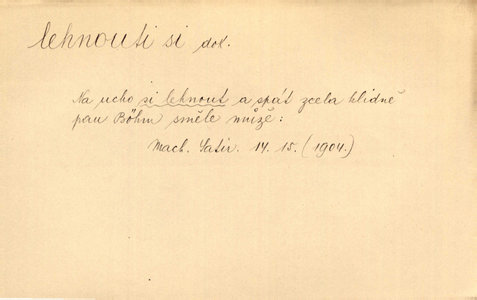 lehnouti si dok.
Na ucho si lehnout a spát zcela klidně
pan Böhm směle může:
Mach. Satir. 14. 15. (1904.)